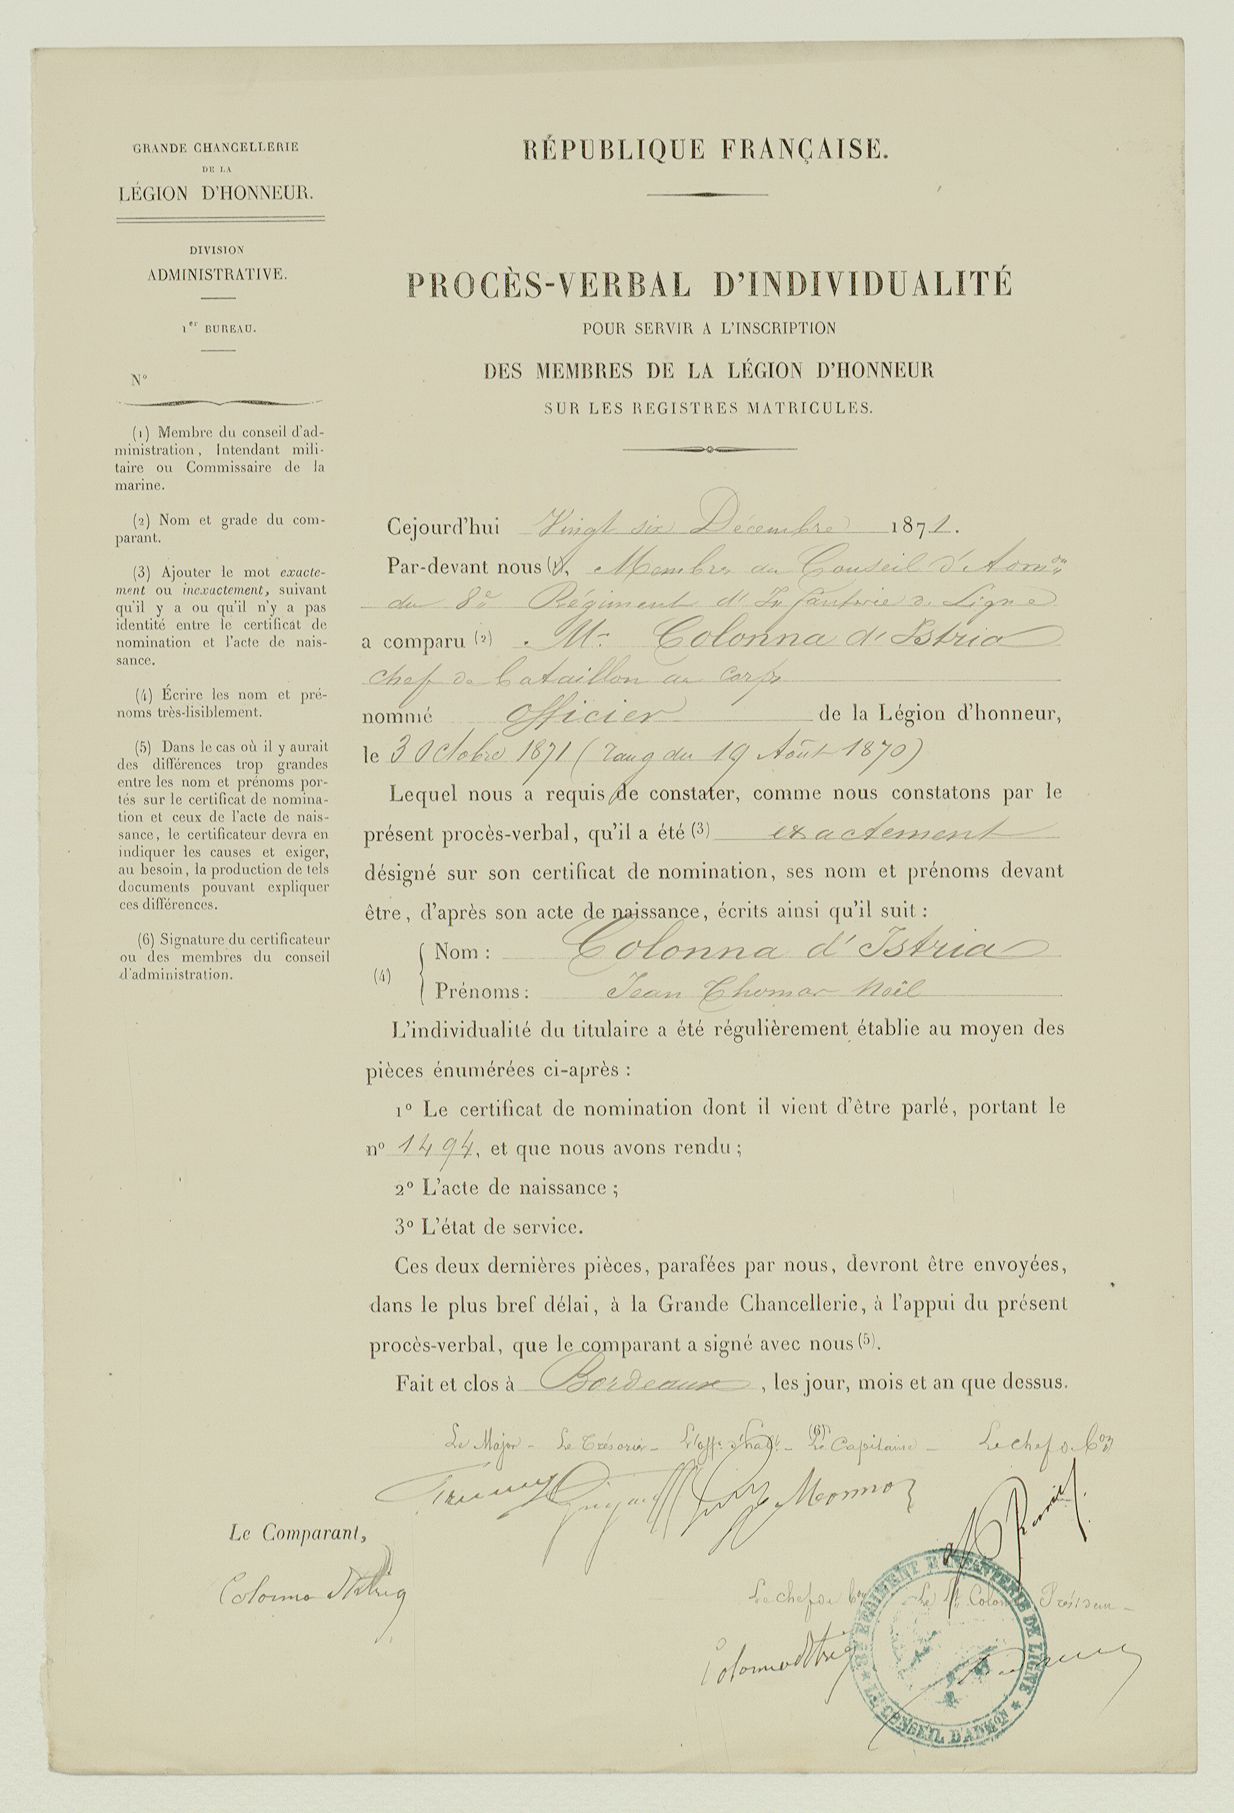 GRANDE CHANCELLERIE
DE LA
LÉGION D'HONNEUR.
DIVISION
ADMINISTRATIVE.
1er BUREAU.
N°
(1) Membre du conseil d'ad-
ministration, Intendant mili-
taire ou Commissaire de la
marine.
(2) Nom et grade du com-
parant.
(3) Ajouter le mot exacte-
ment ou inexactement, suivant
qu'il y a ou qu'il n'y a pas
identité entre le certificat de
nomination et l'acte de nais-
sance.
(4) Écrire les nom et pré-
noms très-lisiblement.
(5) Dans le cas où il y aurait
des différences trop grandes
entre les nom et prénoms por-
tés sur le certificat de nomina-
tion et ceux de l'acte de nais-
sance, le certificateur devra en
indiquer les causes et exiger,
au besoin, la production de tels
documents pouvant expliquer
ces différences.
(6) Signature du certificateur
ou des membres du conseil
d'administration.
RÉPUBLIQUE FRANÇAISE.
PROCÈS-VERBAL D'INDIVIDUALITÉ
POUR SERVIR A L'INSCRIPTION
DES MEMBRES DE LA LÉGION D'HONNEUR
SUR LES REGISTRES MATRICULES.
Cejourd'hui Vingt six Décembre 1871.
Par-devant nous (1), Membres du Conseil d'Admon
du 8e Régiment d'Infanterie de Ligne
a comparu (2) Mr Colonna d'Istria
chef de bataillon au corps
nommé officier de la Légion d'honneur,
le 3 Octobre 1871 (rang du 19 Août 1870)
Lequel nous a requis de constater, comme nous constatons par le
présent procès-verbal, qu'il a été (3) exactement
désigné sur son certificat de nomination, ses nom et prénoms devant
être, d'après son acte de naissance, écrits ainsi qu'il suit :
(4) Nom : Colonna d'Istria
Prénoms : Jean Thomas Noël
L'individualité du titulaire a été régulièrement établie au moyen des
pièces énumérées ci-après :
1° Le certificat de nomination dont il vient d'être parlé, portant le
n° 1494, et que nous avons rendu ;
2° L'acte de naissance ;
3° L'état de service.
Ces deux dernières pièces, parafées par nous, devront être envoyées,
dans le plus bref délai, à la Grande Chancellerie, à l'appui du présent
procès-verbal, que le comparant a signé avec nous (5).
Fait et clos à Bordeaux, les jour, mois et an que dessus.
(6)
Le Major - Le Trésorier - L'offr d'habt - Le Capitaine - Le chef de Bon
Le Comparant,
Colonna d'Istria
Le chef de Bon Le Lt Colonel Président
Colonna d'Istria
8e RÉGIMENT D'INFANTERIE DE LIGNE
LE CONSEIL D'ADMON